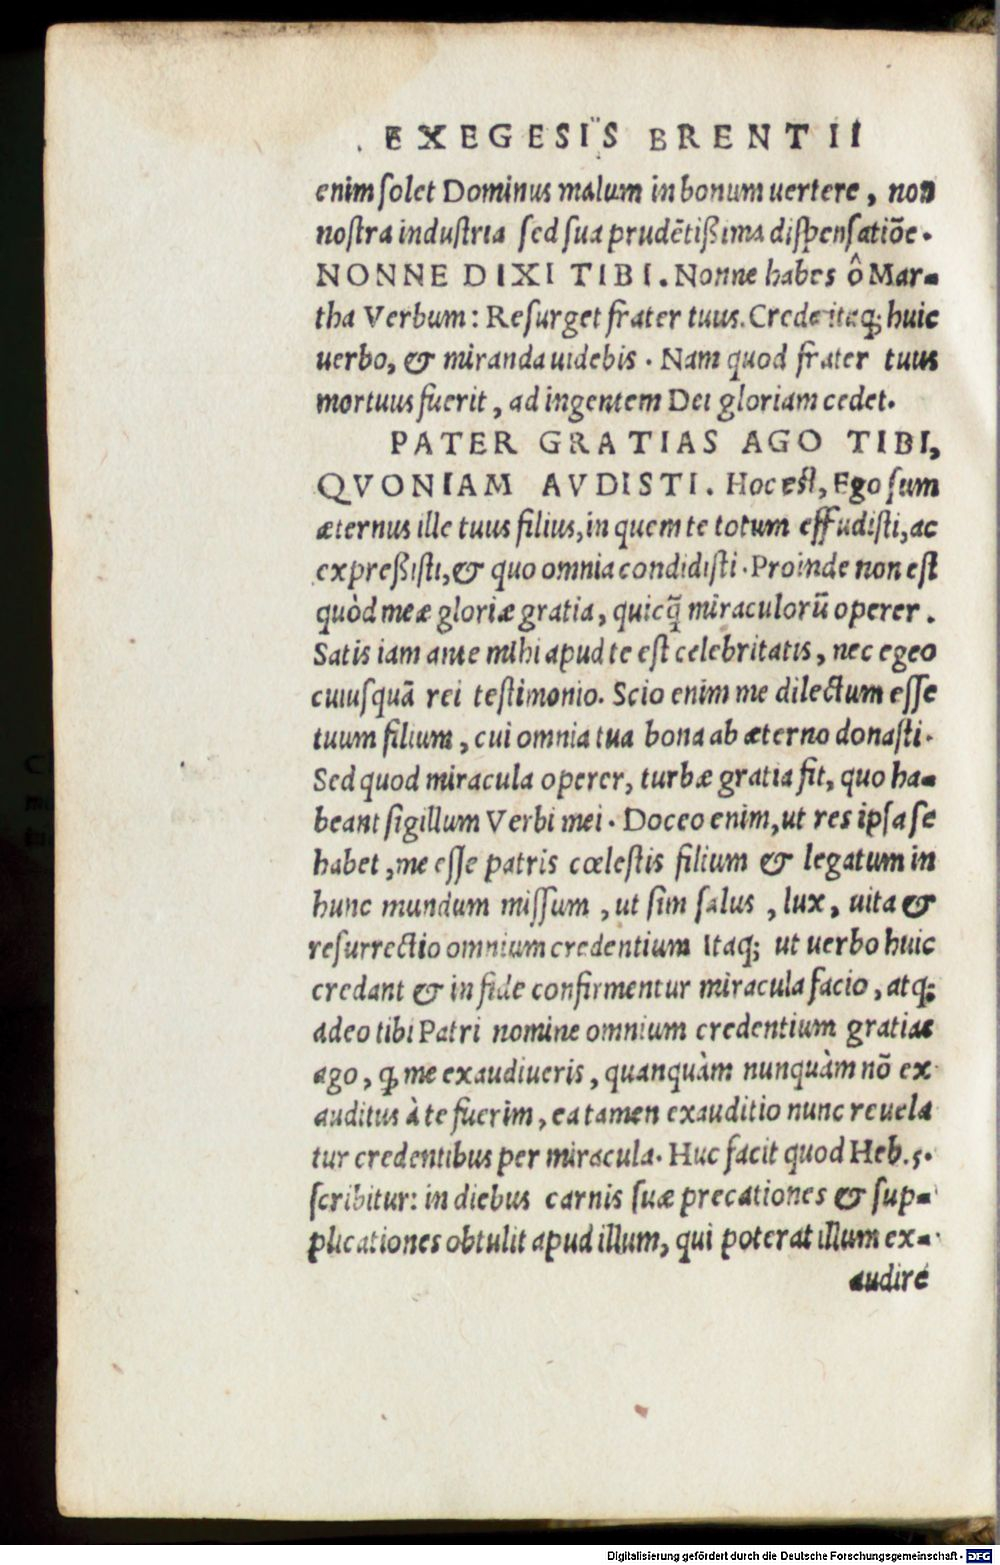 EXEGESIS BRENTII
enim ſolet Dominus malum in bonum uertere, non
noſtra induſtria ſed ſua prudẽtißima diſpenſatiõe.
NONNE DIXI TIBI. Nonne habes ô Mar-
tha Verbum: Reſurget frater tuus. Crede itaq; huic
uerbo, & miranda uidebis. Nam quod frater tuus
mortuus fuerit, ad ingentem Dei gloriam cedet.
PATER GRATIAS AGO TIBI,
QVONIAM AVDISTI. Hoc eſt, Ego ſum
æternus ille tuus filius, in quem te totum effudiſti, ac
expreßiſti, & quo omnia condidiſti. Proinde non eſt
quòd meæ gloriæ gratia, quicq̃ miraculorũ operer.
Satis iam ante mihi apud te eſt celebritatis, nec egeo
cuiuſquã rei teſtimonio. Scio enim me dilectum eſſe
tuum filium, cui omnia tua bona ab æterno donaſti.
Sed quod miracula operer, turbæ gratia fit, quo ha-
beant ſigillum Verbi mei. Doceo enim, ut res ipſa ſe
habet, me eſſe patris cœleſtis filium & legatum in
hunc mundum miſſum, ut ſim ſalus, lux, uita &
reſurrectio omnium credentium Itaq; ut uerbo huic
credant & in fide confirmentur miracula facio, atq;
adeo tibi Patri nomine omnium credentium gratias
ago, ꝙ me exaudiueris, quanquàm nunquàm nõ ex
auditus à te fuerim, ea tamen exauditio nunc reuela
tur credentibus per miracula. Huc facit quod Heb. 5.
ſcribitur: in diebus carnis ſuæ precationes & ſup-
plicationes obtulit apud illum, qui poterat illum ex-
audire
Digitalisierung gefördert durch die Deutsche Forschungsgemeinschaft - DFG